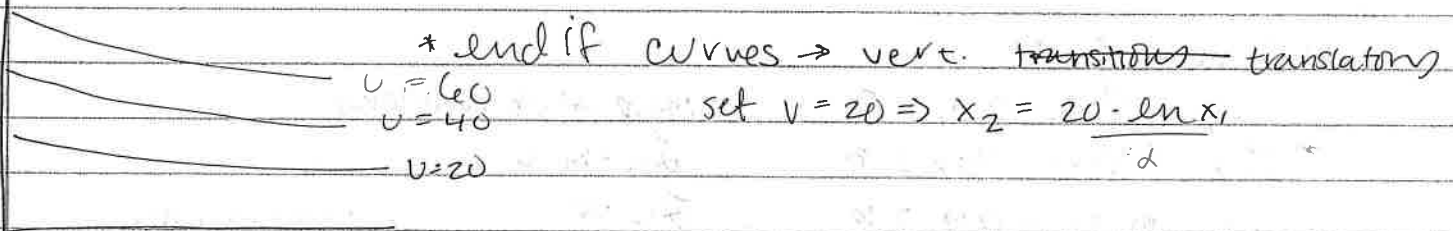 * end if curves → vert. transitions translations
U = 60
U = 40
set U = 20 => x₂ = 20 - ln x₁
α
U = 20